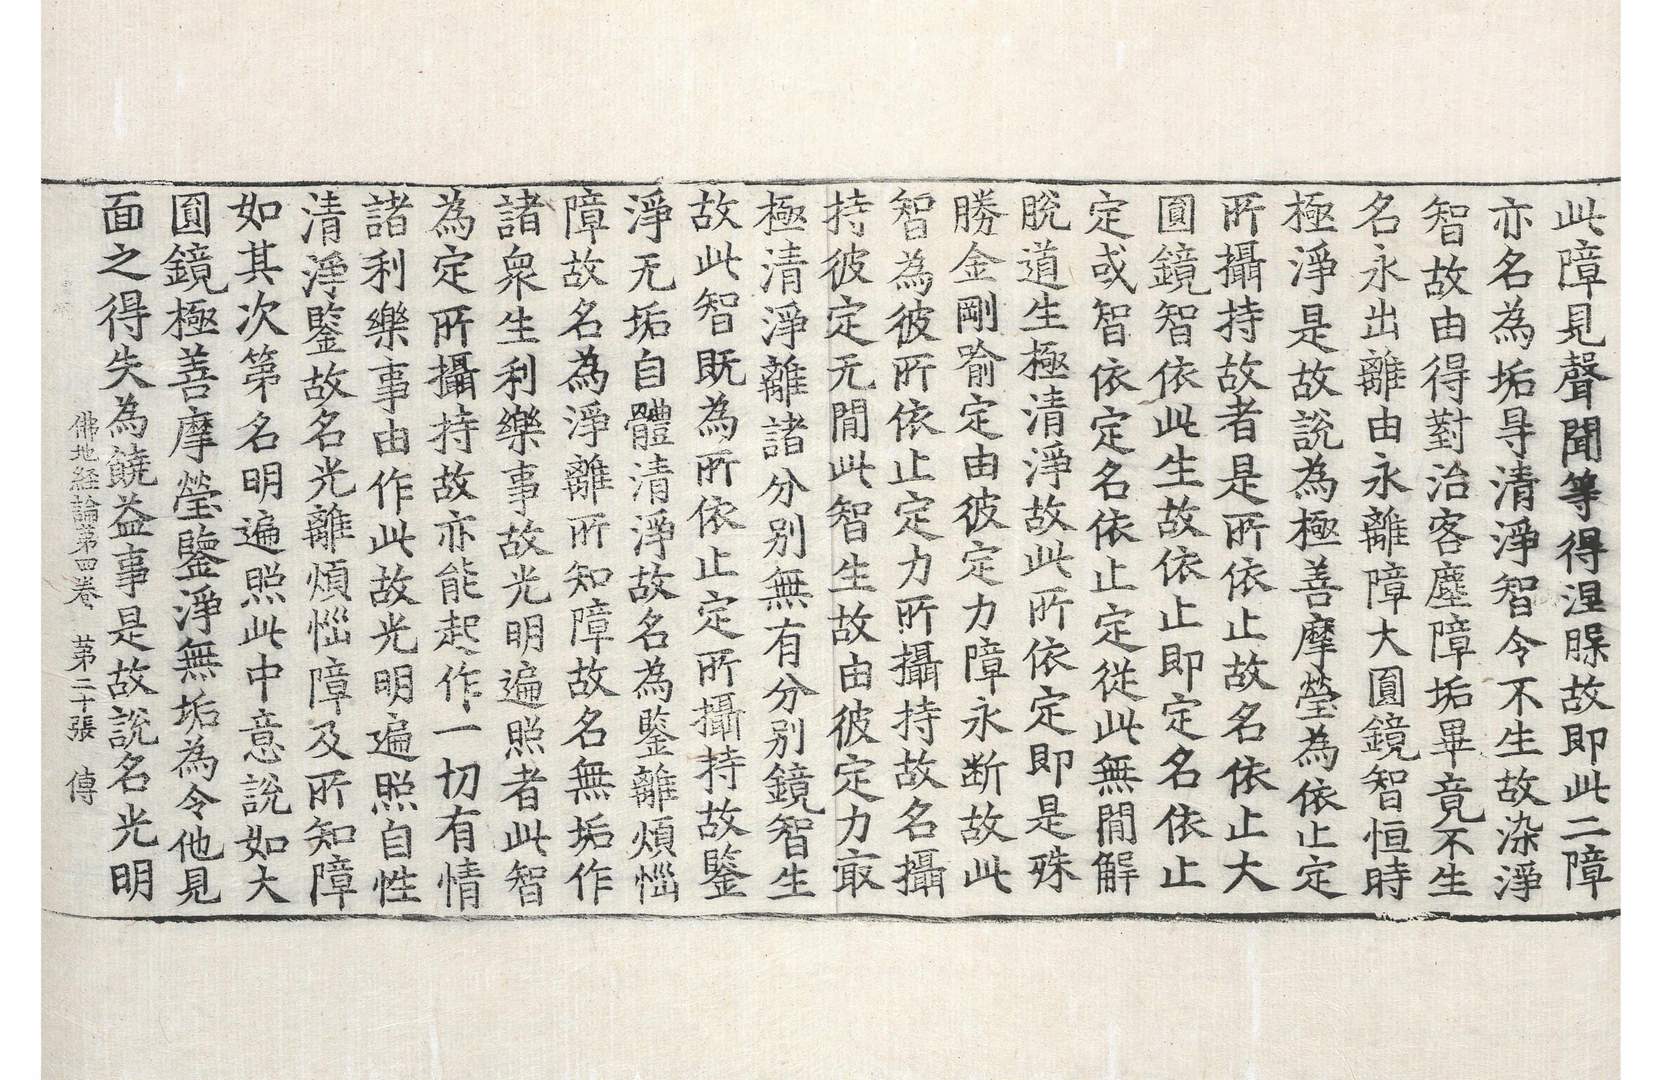 此障見聲聞等得涅脲故即此二障
亦名為垢㝵清淨智令不生故染淨
智故由得對治客塵障垢畢竟不生
名永出離由永離障大圎鏡智恒時
極淨是故說為極善摩瑩為依止定
所攝持故者是所依止故名依止大
圎鏡智依此生故依止即定名依止
定或智依定名依止定從此無間解
脫道生極清淨故此所依定即是殊
勝金剛喻定由彼定力障永断故此
智為彼所依止定力所攝持故名攝
持彼定无間此智生故由彼定力㝡
極清淨離諸分别無有分别鏡智生
故此智既為所依止定所攝持故鑒
淨无垢自體清淨故名為鑒離煩惱
障故名為淨離所知障故名無垢作
諸衆生利樂事故光明遍照者此智
為定所攝持故亦能起作一切有情
諸利樂事由作此故光明遍照自性
清淨鑒故名光離煩惱障及所知障
如其次第名明遍照此中意說如大
圎鏡極善摩瑩鑒淨無垢為令他見
面之得失為饒益事是故說名光明
佛地経論第四卷 苐二十張 傳